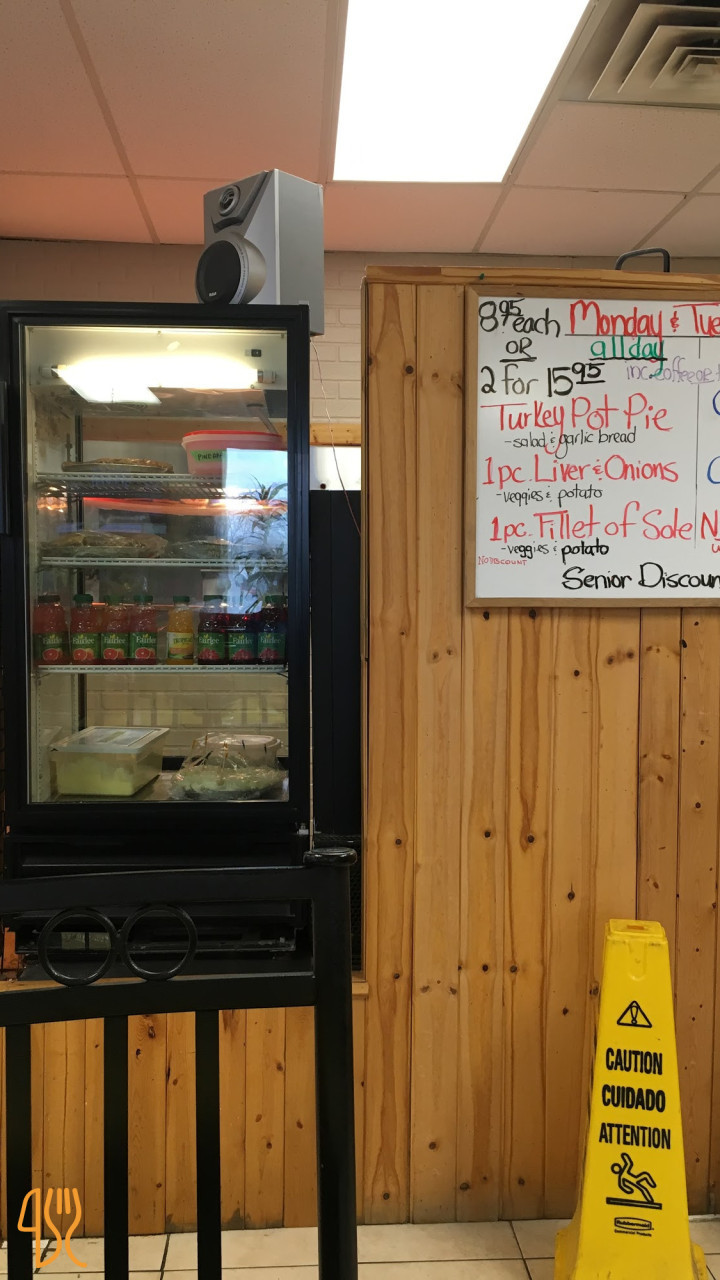 8 95 each Monday & Tue
OR all day
2 for 15 95 inc. coffee or
Turkey Pot Pie
- salad & garlic bread
1 pc. Liver & Onions
- veggies & potato
1 pc. Fillet of Sole
- veggies & potato
NO DISCOUNT
Senior Discoun
Fairlee Fairlee Fairlee Fairlee
CAUTION
CUIDADO
ATTENTION
Rubbermaid